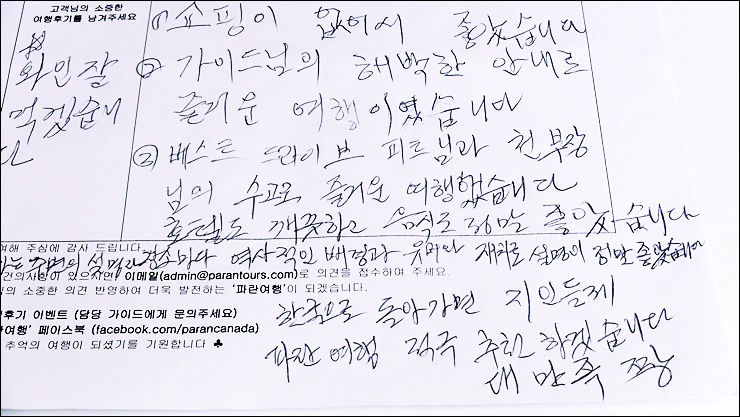 고객님의 소중한
여행후기를 남겨주세요
와인 잘
먹겠습니
다
① 쇼핑이 없어서 좋았습니다
② 가이드님의 해박한 안내로
즐거운 여행이였습니다
② 베스트 드라이브 피트님과 천부장
님의 수고로 즐거운 여행했습니다
호텔도 깨끗하고 음식도 정말 좋았습니다
여해 주심에 감사 드립니다.
설명과 역사적인 배경과 유머와 재치로 설명이 정말 좋았습니다
건의사항이 있으시면 이메일(admin@parantours.com)로 의견을 접수하여 주세요.
의 소중한 의견 반영하여 더욱 발전하는 '파란여행'이 되겠습니다.
후기 이벤트 (담당 가이드에게 문의주세요)
한국으로 돌아가면 지인들께
란여행' 페이스북 (facebook.com/parancanada)
추억의 여행이 되셨기를 기원합니다 ♣
파란 여행 적극 추천하겠습니다
대만족 짱